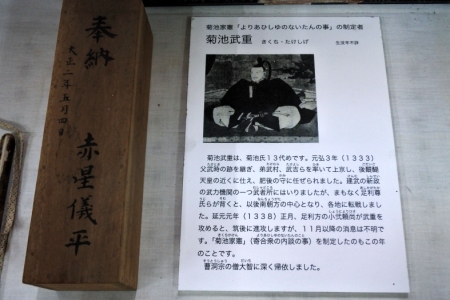 奉納
大正二年五月四日
赤星儀平
菊池家憲「よりあひしゆのないたんの事」の制定者
菊池武重 きくち・たけしげ 生没年不詳
菊池武重は、菊池氏13代めです。元弘3年（1333）
父武時の跡を継ぎ、弟武村、武吉らを率いて上京し、後醍醐
天皇の近くに仕え、肥後の守に任ぜられました。建武の新政
の武力機関の一つ武者所にはいりましたが、まもなく足利尊
氏らが背くと、以後南朝方の中心となり、各地に転戦しまし
た。延元元年（1338）正月、足利方の小弐頼尚が武重を
攻めると、筑後に進攻しますが、11月以降の消息は不明で
す。「菊池家憲」（寄合衆の内談の事）を制定したのもこの年
のことです。
曹洞宗の僧大智に深く帰依しました。